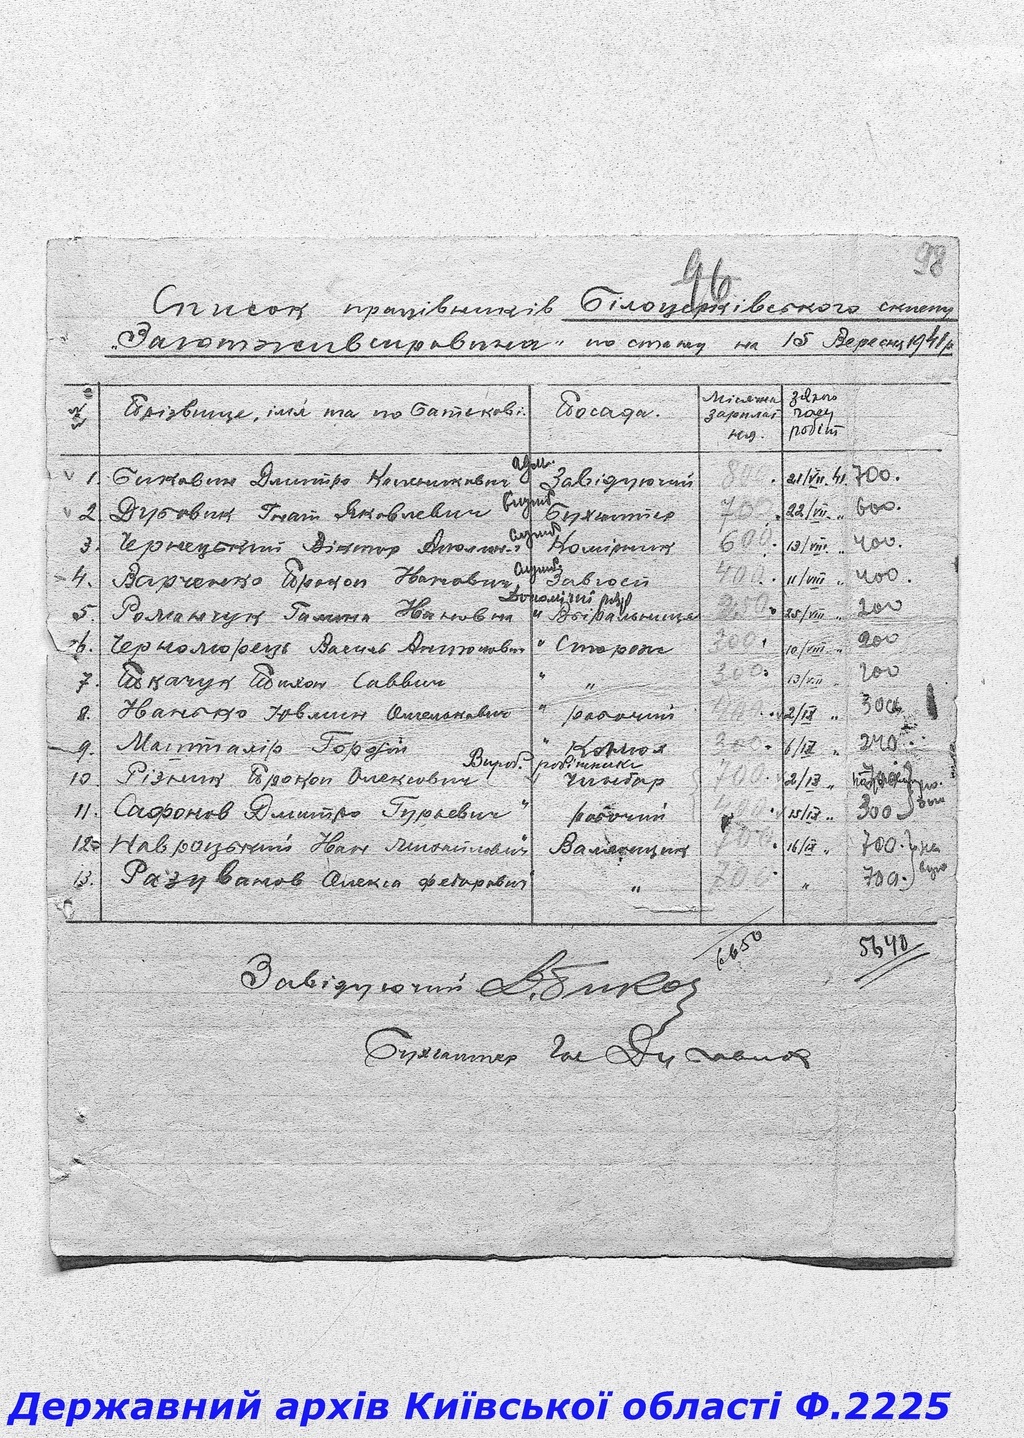 98
96
Список працівників Білоцерківського складу
„Заготживсировина" по стану на 15 Вересня 1941 р
№№ Прізвище, імя та по батькові. Посада. Місячна зарплатня. З якого часу робить
1. Биковин Дмитро адм. Завідуючий 800. 21/VII 41 700.
2. Дубовик Гнат Яковлевич Бухгалтер 700. 22/VII „ 600.
3. Чернецький Віктор Комірник 600. 13/VIII „ 400.
4. Варченко Прокоп Иванович Завгосп 400. 11/VIII „ 400.
Допоміжні
5. Романчук Галина Ивановна " Вбіральниця 250. 25/VIII „ 200
6. Черноморець Василь Антонович " Сторож 300. 10/VIII „ 200
7. Ткачук Тихон Саввич " „ 300. 13/VIII 200
8. Иванько Омелькович " робочий 400. 2/IX „ 300
9. Машталір Гордій " Конюх 300. 6/IX „ 240.
Вироб. робітники
10 Різник Прокоп Олексович Чинбар 700. 2/IX 700
11. Сафонов Дмитро Гурьевич " робочий 400. 15/IX „ 300
12. Навроцький Иван Михайлович " Валяющик 700. 16/IX „ 700.
13. Разуванов Олекса Федорович " „ 700. „ 700.
6650 5640
Завідуючий Д. Бико
Бухгалтер Дубовик
Державний архів Київської області Ф.2225